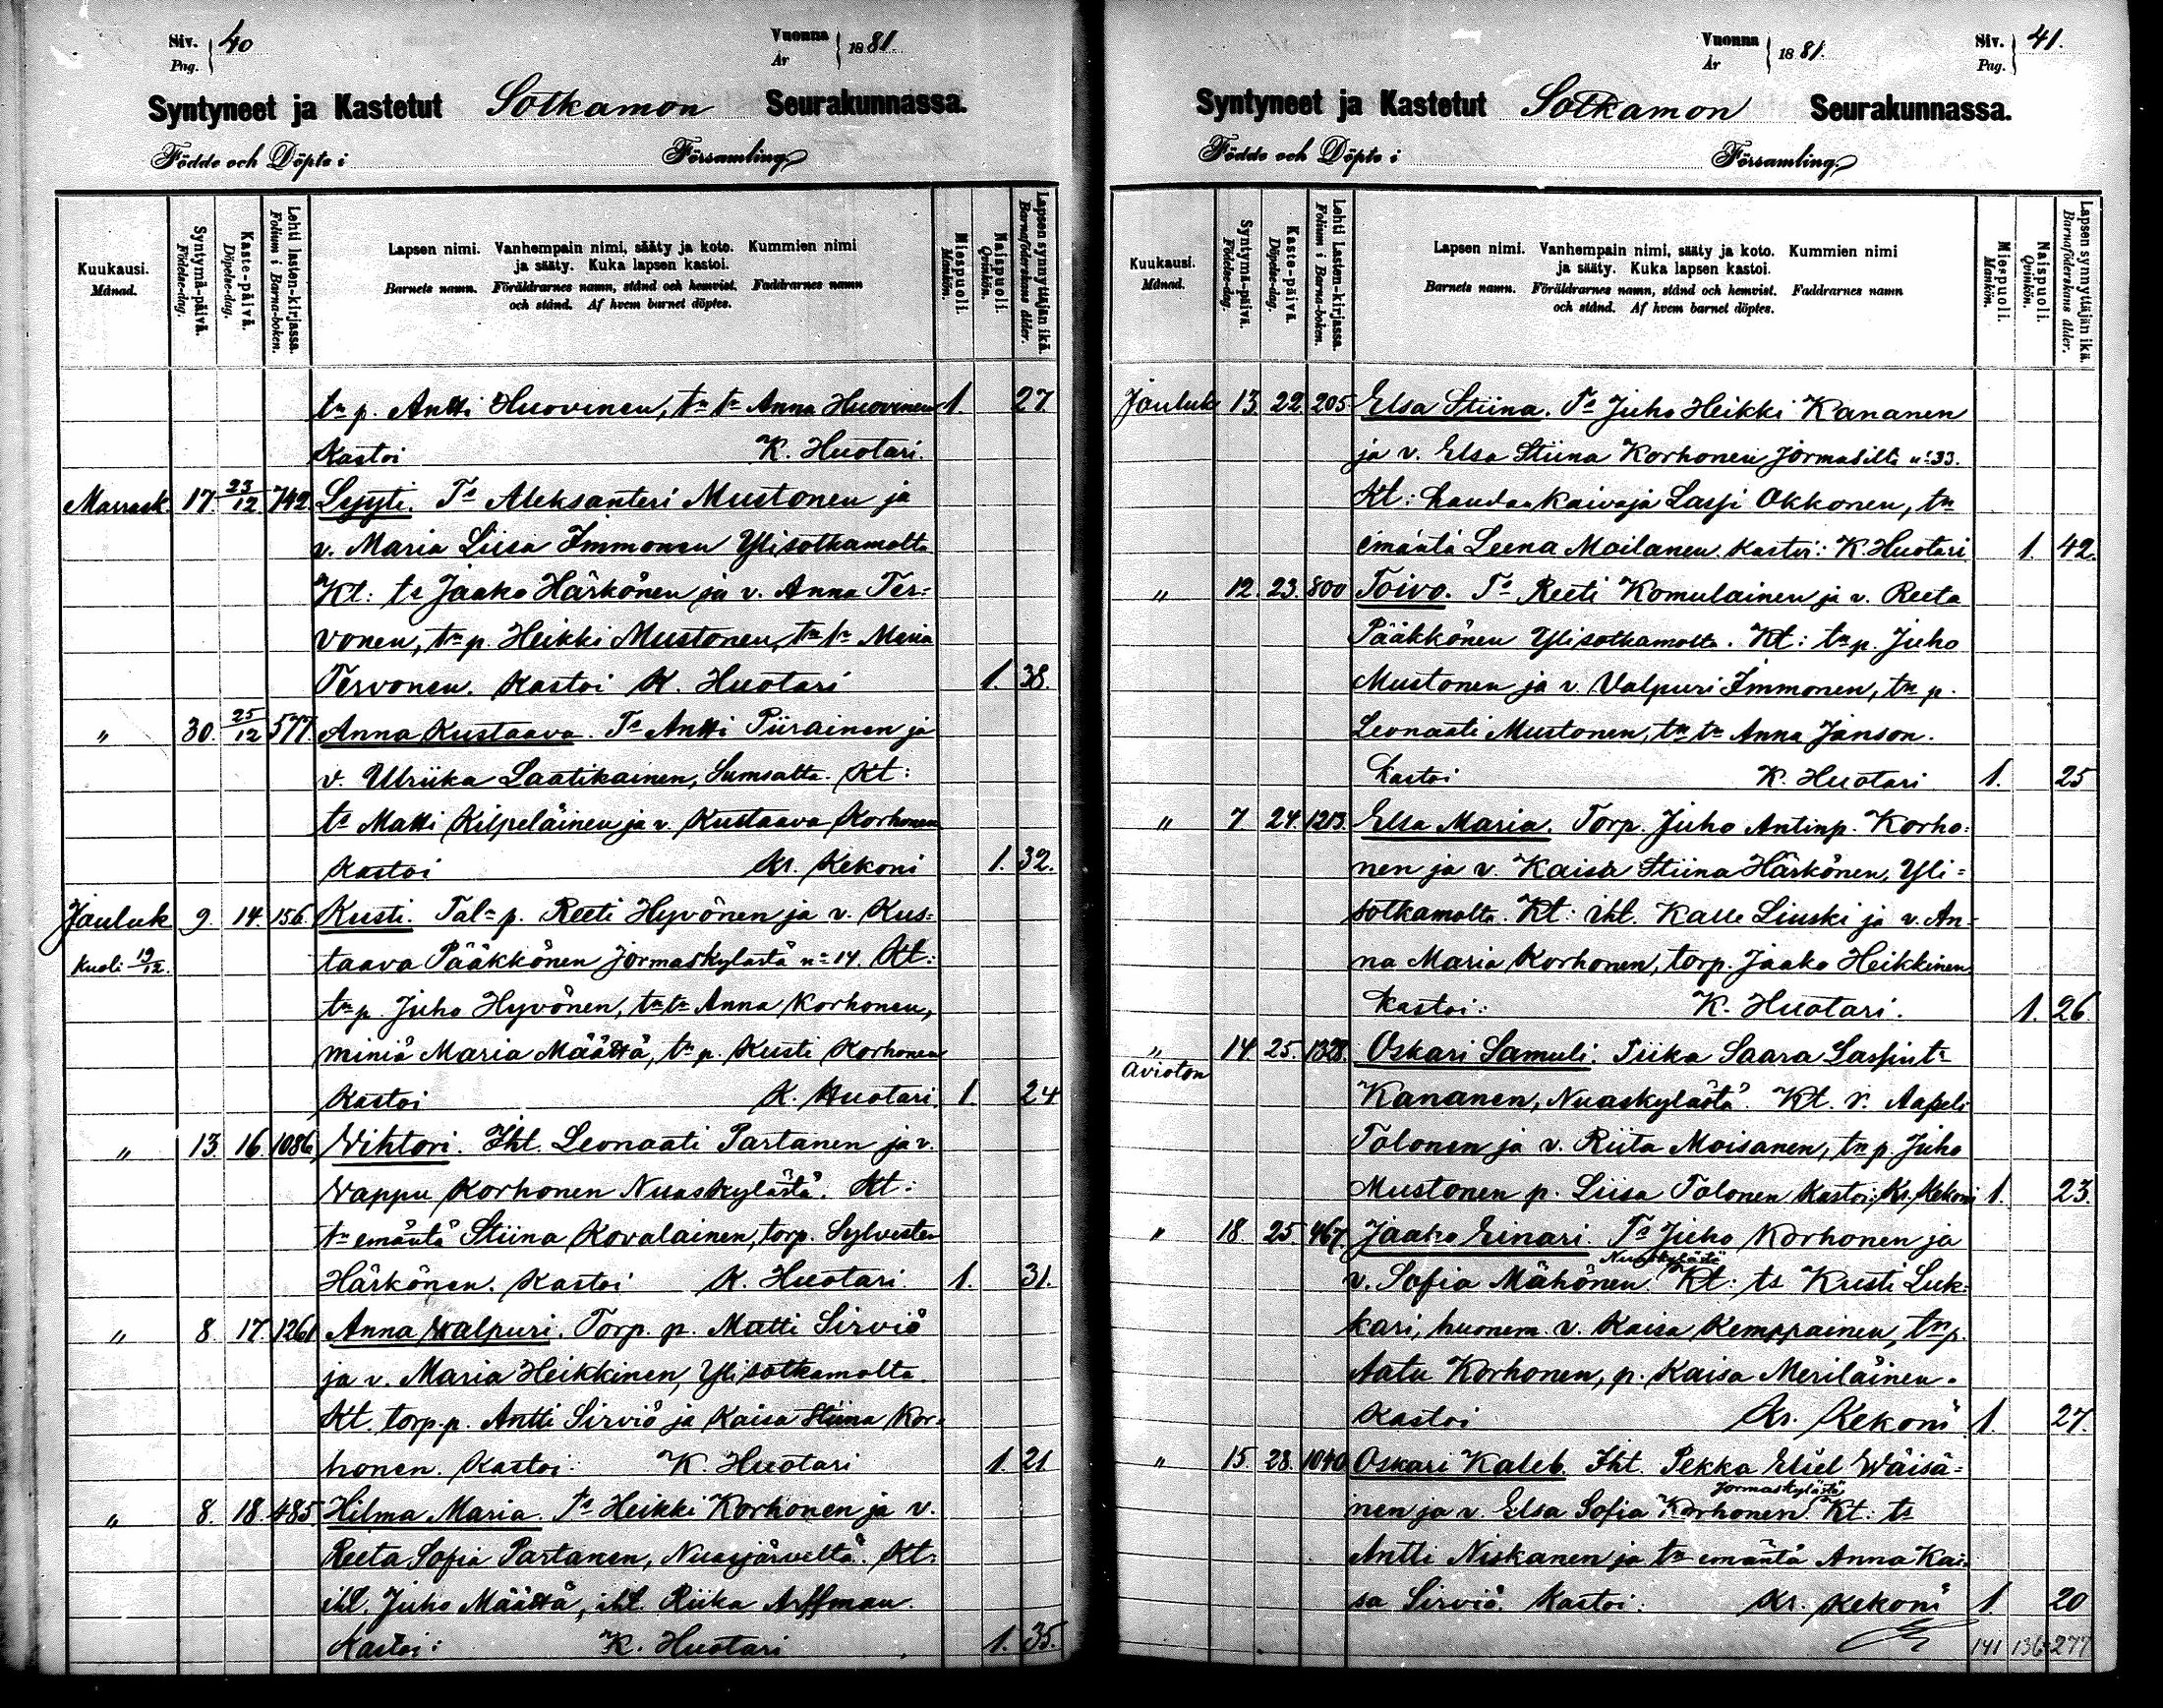 Siv. 40
Pag.
Vuonna 1881.
År
Syntyneet ja Kastetut Sotkamon Seurakunnassa.
Födde och Döpte i Församling
Kuukausi.
Månad.
Syntymä-päivä.
Födelse-dag.
Kaste-päivä.
Döpelse-dag.
Lehti lasten-kirjassa.
Folium i Barna-boken.
Lapsen nimi. Vanhempain nimi, sääty ja koto. Kummien nimi
ja sääty. Kuka lapsen kastoi.
Barnets namn. Föräldrarnes namn, stånd och hemvist. Faddrarnes namn
och stånd. Af hvem barnet döptes.
Miespuoli.
Mankön.
Naispuoli.
Qvinkön.
Lapsen synnyttäjän ikä.
Barnaföderskans ålder.
tn p. Antti Huovinen, tn tr Anna Huovinen 1. 27
Kastoi K. Huotari.
Marrask. 17. 23/12 742. Lyyti. Ts Aleksanteri Mustonen ja
v. Maria Liisa Immonen Ylisotkamolta
Kt: ts Jaako Härkönen ja v. Anna Ter=
vonen, tn p. Heikki Mustonen, tn tr Maria
Tervonen. Kastoi K. Huotari 1. 38.
" 30. 25/12 577. Anna Kustaava. Ts Antti Piirainen ja
v. Ulriika Laatikainen, Sumsalta. Kt:
ts Matti Kilpeläinen ja v. Kustaava Korhonen
Kastoi Kr. Kekoni 1. 32.
Jouluk 9. 14. 156. Kusti. Tal=p. Reeti Hyvönen ja v. Kus=
Kuoli 19/12. taava Pääkkönen Jormaskylästä n:o 14. Kt:
tn p. Juho Hyvönen, tn tr Anna Korhonen,
miniä Maria Määttä, tn p. Kusti Korhonen
Kastoi K. Huotari. 1. 24
" 13. 16. 1086 Wihtori. Iht. Leonaati Partanen ja v.
Wappu Korhonen Nuaskylästä. Kt:
tn emäntä Stiina Kovalainen, torp. Sylvester
Härkönen. Kastoi K. Huotari. 1. 31.
" 8. 17. 1261 Anna Walpuri. Torp. p. Matti Sirviö
ja v. Maria Heikkinen, Ylisotkamolta.
Kt. torp. p. Antti Sirviö ja Kaisa Stiina Kor=
honen. Kastoi: K. Huotari 1. 21
" 8. 18. 485. Hilma Maria. Ts Heikki Korhonen ja v.
Reeta Sofia Partanen, Nuasjärveltä. Kt:
iht. Juho Määttä, iht. Riika Arffman.
Kastoi: K. Huotari 1. 35.
Vuonna 1881.
År
Siv. 41.
Pag.
Syntyneet ja Kastetut Sotkamon Seurakunnassa.
Födde och Döpte i Församling
Kuukausi.
Månad.
Syntymä-päivä.
Födelse-dag.
Kaste-päivä.
Döpelse-dag.
Lehti Lasten-kirjassa.
Folium i Barna-boken.
Lapsen nimi. Vanhempain nimi, sääty ja koto. Kummien nimi
ja sääty. Kuka lapsen kastoi.
Barnets namn. Föräldrarnes namn, stånd och hemvist. Faddrarnes namn
och stånd. Af hvem barnet döptes.
Miespuoli.
Mankön.
Naispuoli.
Qvinkön.
Lapsen synnyttäjän ikä.
Barnaföderskans ålder.
Jouluk 13. 22. 205 Elsa Stiina. Ts Juho Heikki Kananen
ja v. Elsa Stiina Korhonen Jormasilta n:o 33.
Kt: haudankaivaja Lassi Okkonen, tn
emäntä Leena Moilanen. Kastoi: K. Huotari 1. 42.
" 12. 23. 800 Toivo. Ts Reeti Komulainen ja v. Reeta
Pääkkönen Ylisotkamolta. Kt: tn p. Juho
Mustonen ja v. Valpuri Immonen, tn p.
Leonaati Mustonen, tn tr Anna Janson.
Kastoi K. Huotari 1. 25
" 7 24. 1213. Elsa Maria. Torp. Juho Antinp. Korho=
nen ja v. Kaisa Stiina Härkönen, Yli=
sotkamolta. Kt: iht. Kalle Liuski ja v. An=
na Maria Korhonen, torp. Jaako Heikkinen
Kastoi: K. Huotari. 1. 26
" 14 25. 1328. Oskari Samuli. Piika Saara Lassint:
Avioton Kananen, Nuaskylästä. Kt. v. Aapeli
Tolonen ja v. Riita Moisanen, tn p. Juho
Mustonen p. Liisa Tolonen Kastoi: Kr. Kekoni 1. 23.
" 18 25. 467. Jaako Einari. Ts Juho Korhonen ja
Nuaskylästä
v. Sofia Mähönen. Kt: ts Kusti Luk=
kari, huonem. v. Kaisa Kemppainen, tn p.
Aatu Korhonen, p. Kaisa Meriläinen.
Kastoi Kr. Kekoni 1. 27.
" 15. 28. 1040 Oskari Kaleb. Iht. Pekka Elsel Wäisä=
Jormaskylästä
inen ja v. Elsa Sofia Korhonen. Kt: ts
Antti Niskanen ja tn emäntä Anna Kai=
sa Sirviö. Kastoi: Kr. Kekoni 1. 20
141 136 277